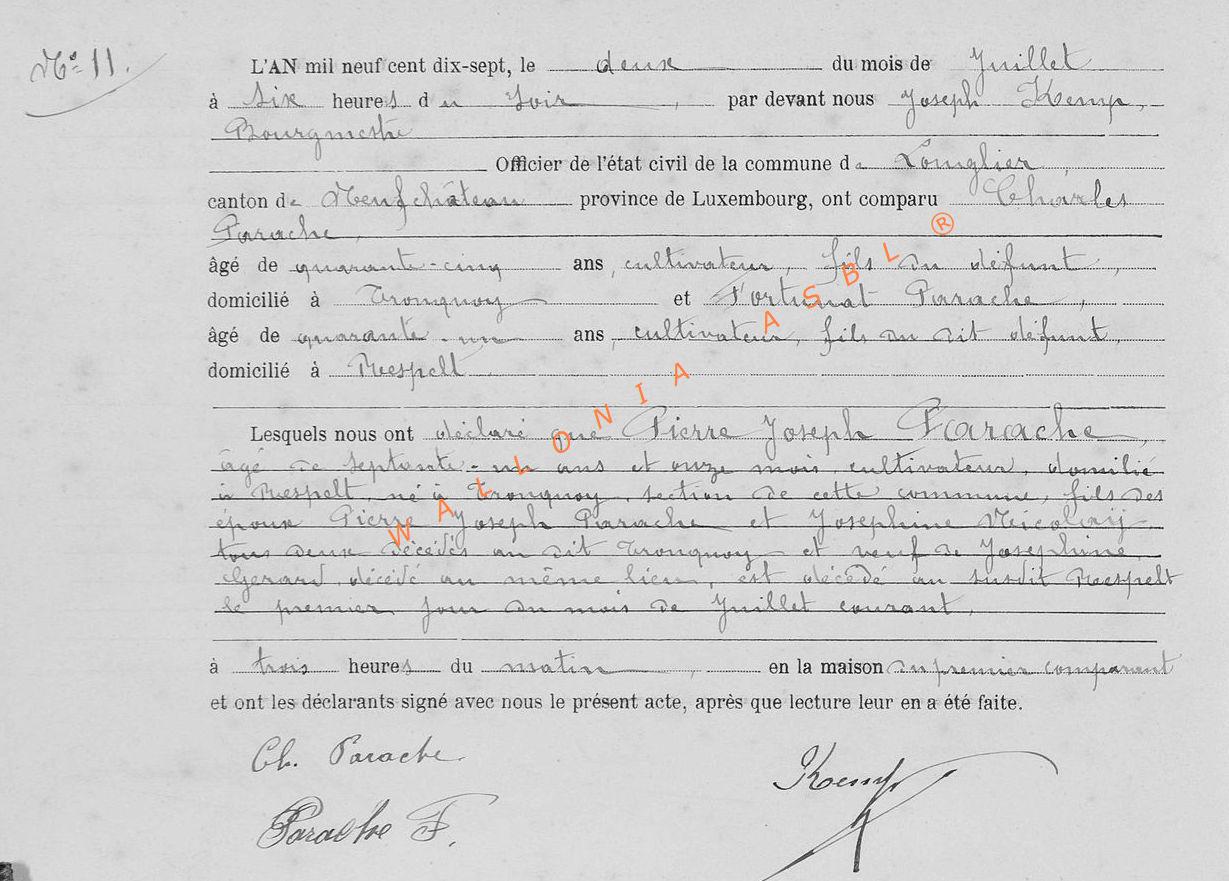 N° 11.
L'AN mil neuf cent dix-sept, le deux du mois de Juillet
à six heures du soir, par devant nous Joseph Kemp,
Bourgmestre
Officier de l'état civil de la commune de Longlier,
canton de Neufchâteau province de Luxembourg, ont comparu Charles
Parache,
âgé de quarante-cinq ans, cultivateur, fils du défunt,
domicilié à Tronquoy et Fortunat Parache,
âgé de quarante-un ans, cultivateur, fils du dit défunt,
domicilié à Respelt
Lesquels nous ont déclaré que Pierre Joseph Parache,
âgé de septante-un ans et onze mois, cultivateur, domicilié
à Respelt, né à Tronquoy, section de cette commune, fils des
époux Pierre Joseph Parache et Josephine Nicolaij
tous deux décédés au dit Tronquoy et veuf de Josephine
Gerard, décédé au même lieu, est décédé au susdit Respelt
le premier jour du mois de Juillet courant,
à trois heures du matin, en la maison du premier comparant
et ont les déclarants signé avec nous le présent acte, après que lecture leur en a été faite.
Ch. Parache.
Kemp
Parache F.
WALLONIA ASBL ®